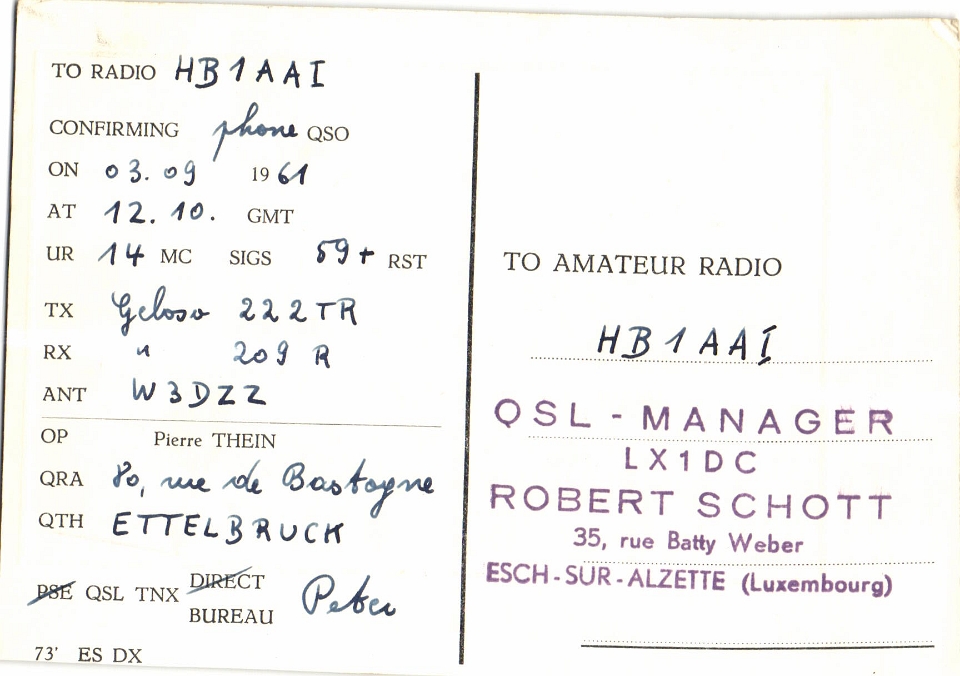 TO RADIO HB1AAI
CONFIRMING phone QSO
ON 03.09 1961
AT 12.10. GMT
UR 14 MC SIGS 59+ RST
TX Geloso 222TR
RX " 209 R
ANT W3DZZ
OP Pierre THEIN
QRA 80, rue de Bastogne
QTH ETTELBRUCK
PSE QSL TNX DIRECT
BUREAU
Peter
73' ES DX
TO AMATEUR RADIO
HB1AAI
QSL-MANAGER
LX1DC
ROBERT SCHOTT
35, rue Batty Weber
ESCH-SUR-ALZETTE (Luxembourg)